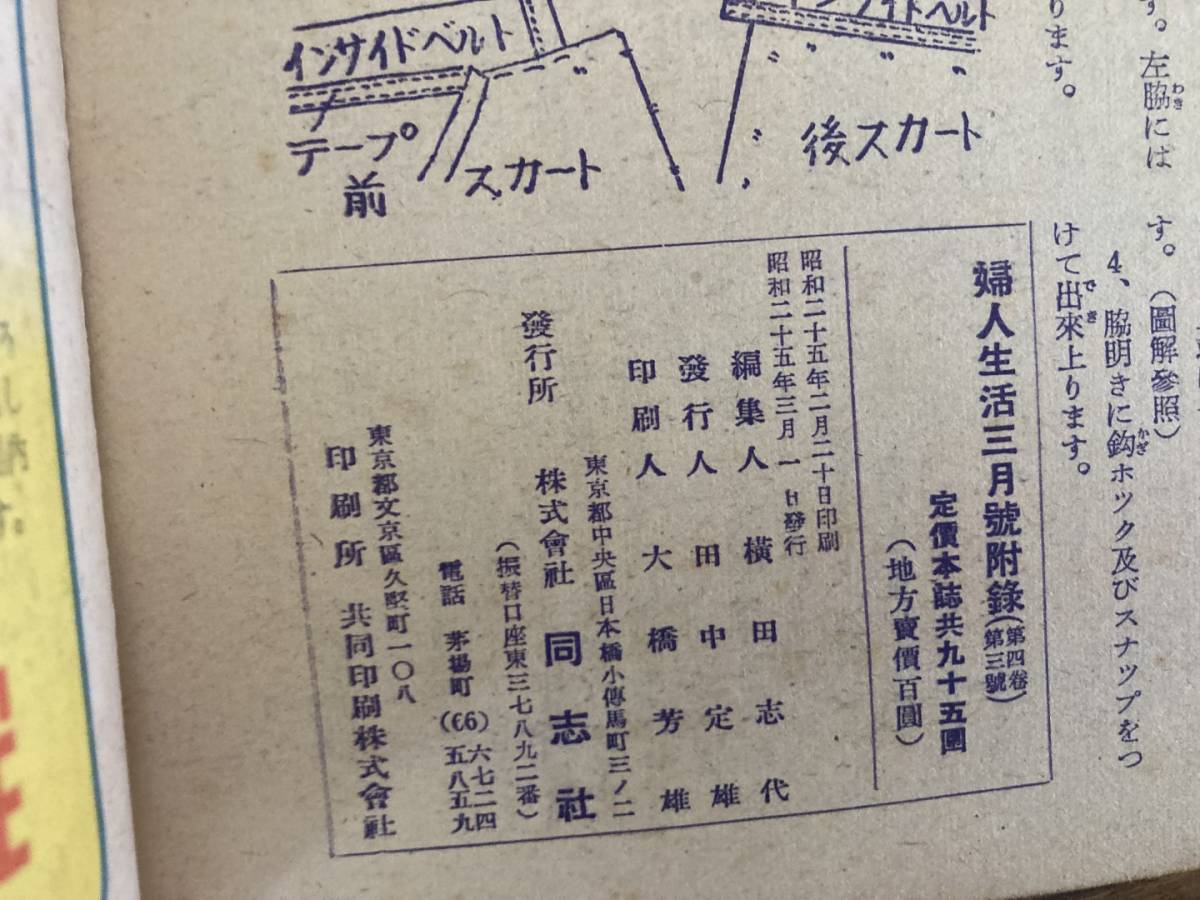 インサイドベルト
テープ
前
スカート
インサイドベルト
後スカート
す。左脇には
わき
ります。
す。(圖解參照)
4、脇明きに鈎ホツク及びスナツプをつ
かぎ
けて出來上ります。
でき
婦人生活三月號附錄(第四卷第三號)
定價本誌共九十五圓
(地方賣價百圓)
昭和二十五年二月二十日印刷
昭和二十五年三月一日發行
編集人 橫田志代
發行人 田中定雄
印刷人 大橋芳雄
東京都中央區日本橋小傳馬町三ノ二
發行所 株式會社 同志社
(振替口座東三七八九二番)
電話 茅場町(66)六七二四
五八五九
東京都文京區久堅町一〇八
印刷所 共同印刷株式會社